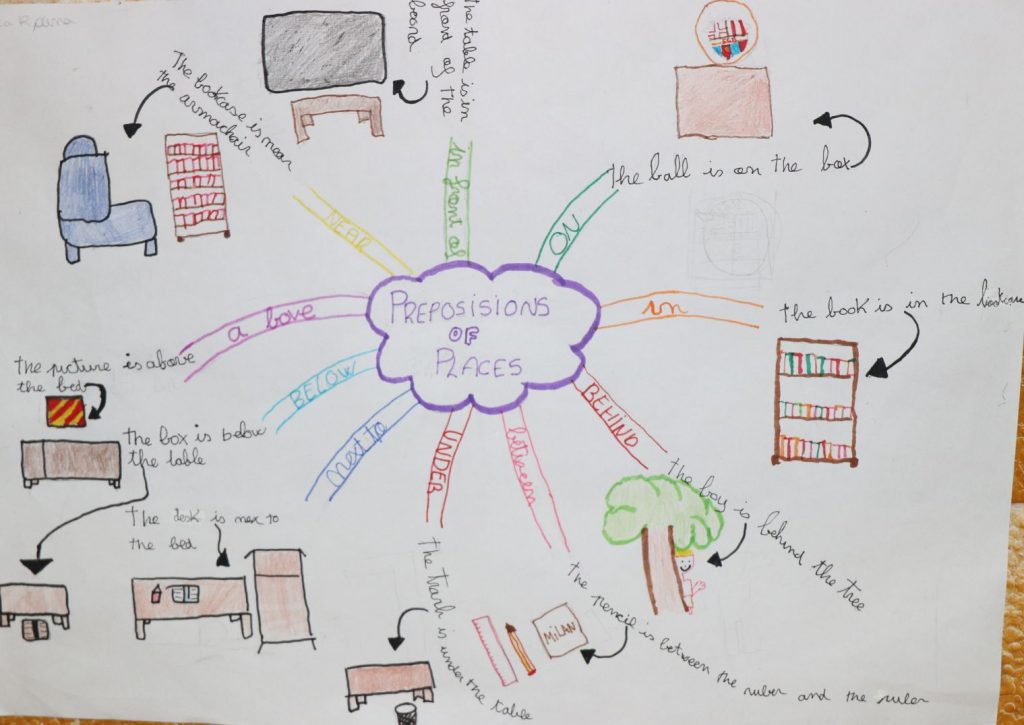 PREPOSISIONS
OF
PLACES
The table is in
of the
board
in front of
ON
The ball is on the box
in
the book is in the
BEHIND
the boy is
behind the tree
between
the pencil is between the ruber and the ruler
MILAN
UNDER
the trash is under the table
next to
The desk is nex to
the bed
BELOW
the box is below
the table
a bove
the picture is above
the bed
NEAR
The bookcase is near
the armachair